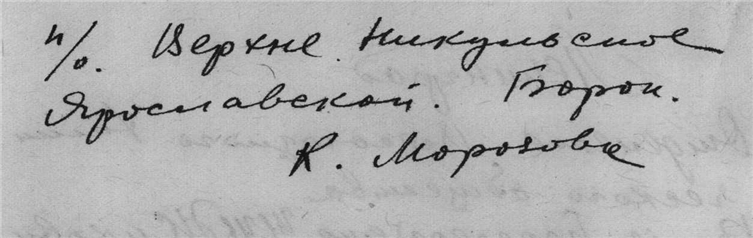 п/о. Верхне Никульское
Ярославской. Борок.
К. Морозова